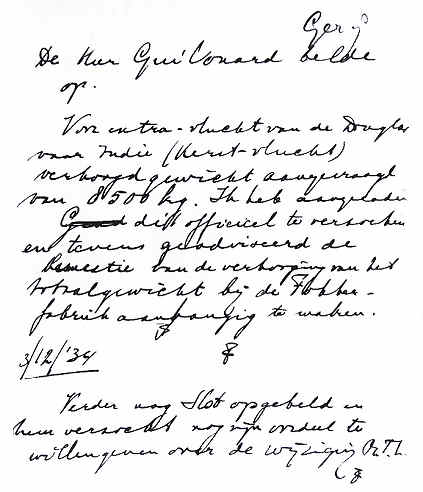 De Heer Guillonard belde
op.
Voor extra-vlucht van de Douglas
naar Indie (Kerst-vlucht)
verhoogd gewicht aangevraagd
van 8500 kg. Ik heb aangeraden
dit officieel te verzoeken
en tevens geadviseerd de
kwestie van de verhooging van het
totaalgewicht bij de Fokker-
fabriek aanhangig te maken.
3/12/'34
Verder nog Slot opgebeld en
hem verzocht nog zijn oordeel te
willen geven over de wijziging